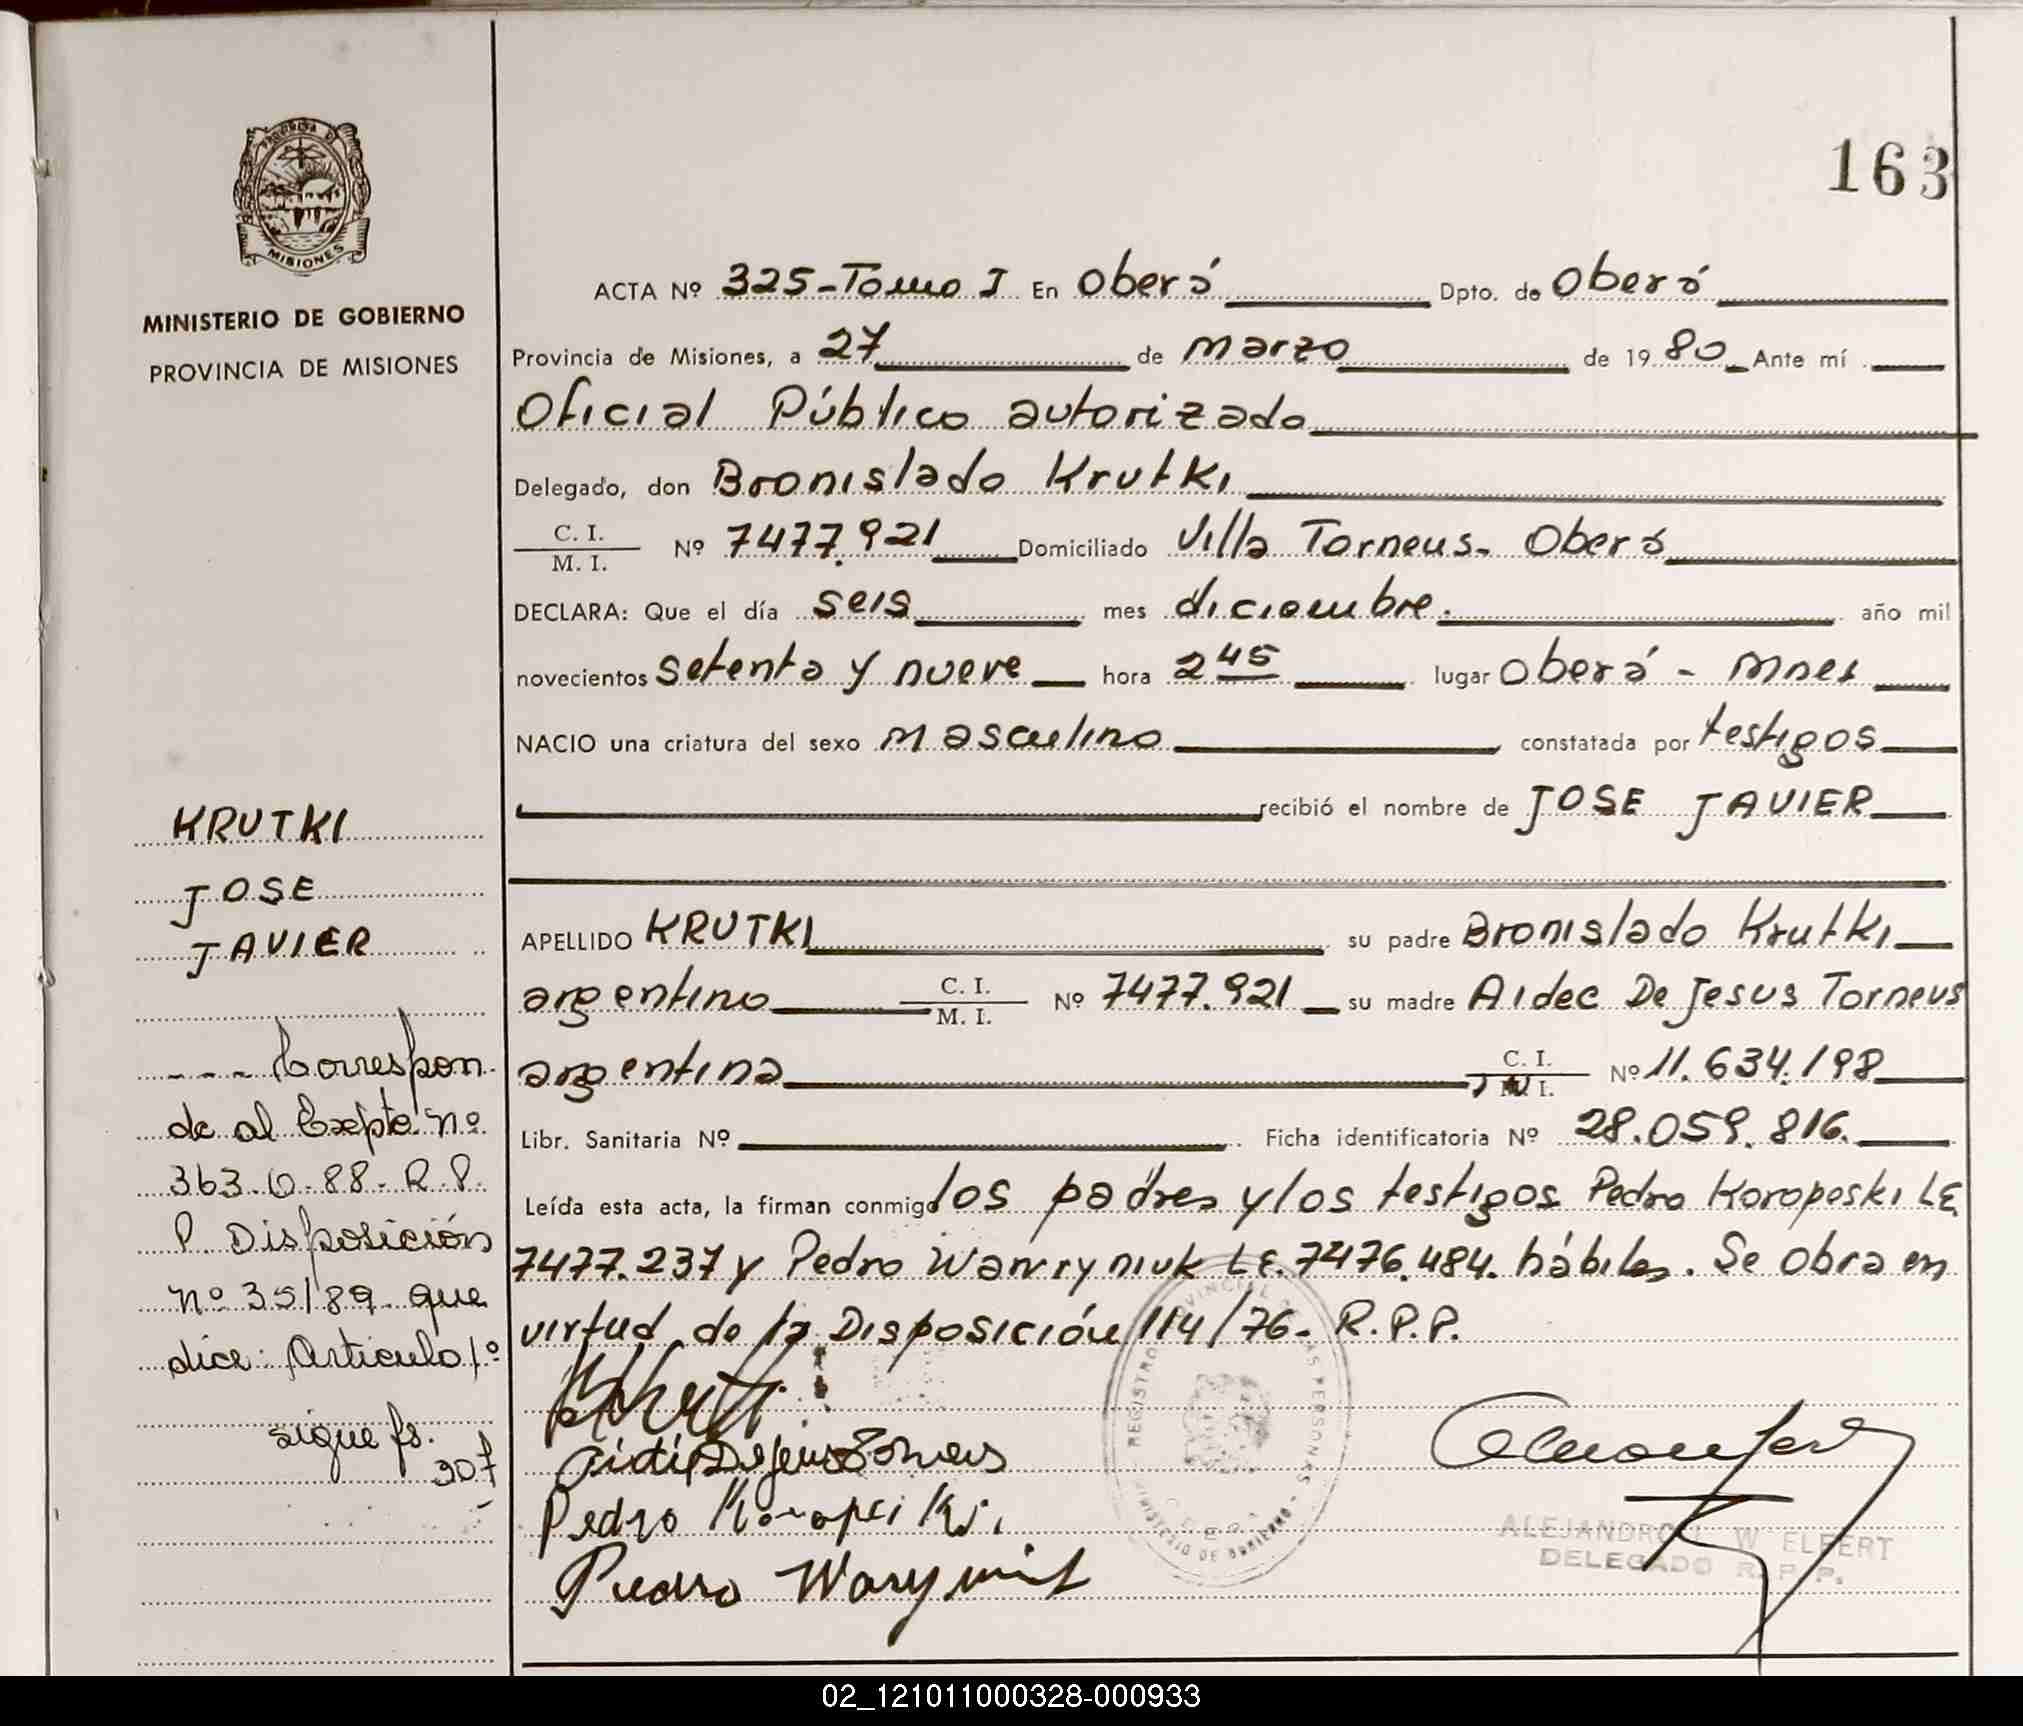 PROVINCIA DE
MISIONES
MINISTERIO DE GOBIERNO
PROVINCIA DE MISIONES
163
ACTA Nº 325-Tomo I En Oberá Dpto. de Oberá
Provincia de Misiones, a 27 de marzo de 1980 Ante mí
Oficial Público autorizado
Delegado, don Bronislado Krutki
C. I.
M. I.
Nº 7477.921 Domiciliado Villa Torneus- Oberá
DECLARA: Que el día seis mes diciembre. año mil
novecientos setenta y nueve hora 2 45 lugar Oberá - Mnes
NACIO una criatura del sexo masculino constatada por testigos
recibió el nombre de JOSE JAVIER
APELLIDO KRUTKI su padre Bronislado Krutki
argentino C. I. M. I. Nº 7477.921 su madre Aidee De Jesus Torneus
argentina C. I. M. I. Nº 11.634.198
Libr. Sanitaria Nº Ficha identificatoria Nº 28.059.816.
Leída esta acta, la firman conmigo los padres y los testigos Pedro Koropeski LE.
7477.237 y Pedro LE. 7476.484. hábiles. Se obra en
virtud de la Disposición 114/76- R.P.P.
Pedro
Pedro
ALEJANDRO W ELFERT
DELEGADO R. P. P.
KRUTKI
JOSE
JAVIER
--- Correspon-
de al Expte nº
363-O-88-R.P.
P. Disposición
nº 35/89 que
dice: Articulo 1º
sigue fs.
307
02_121011000328-000933